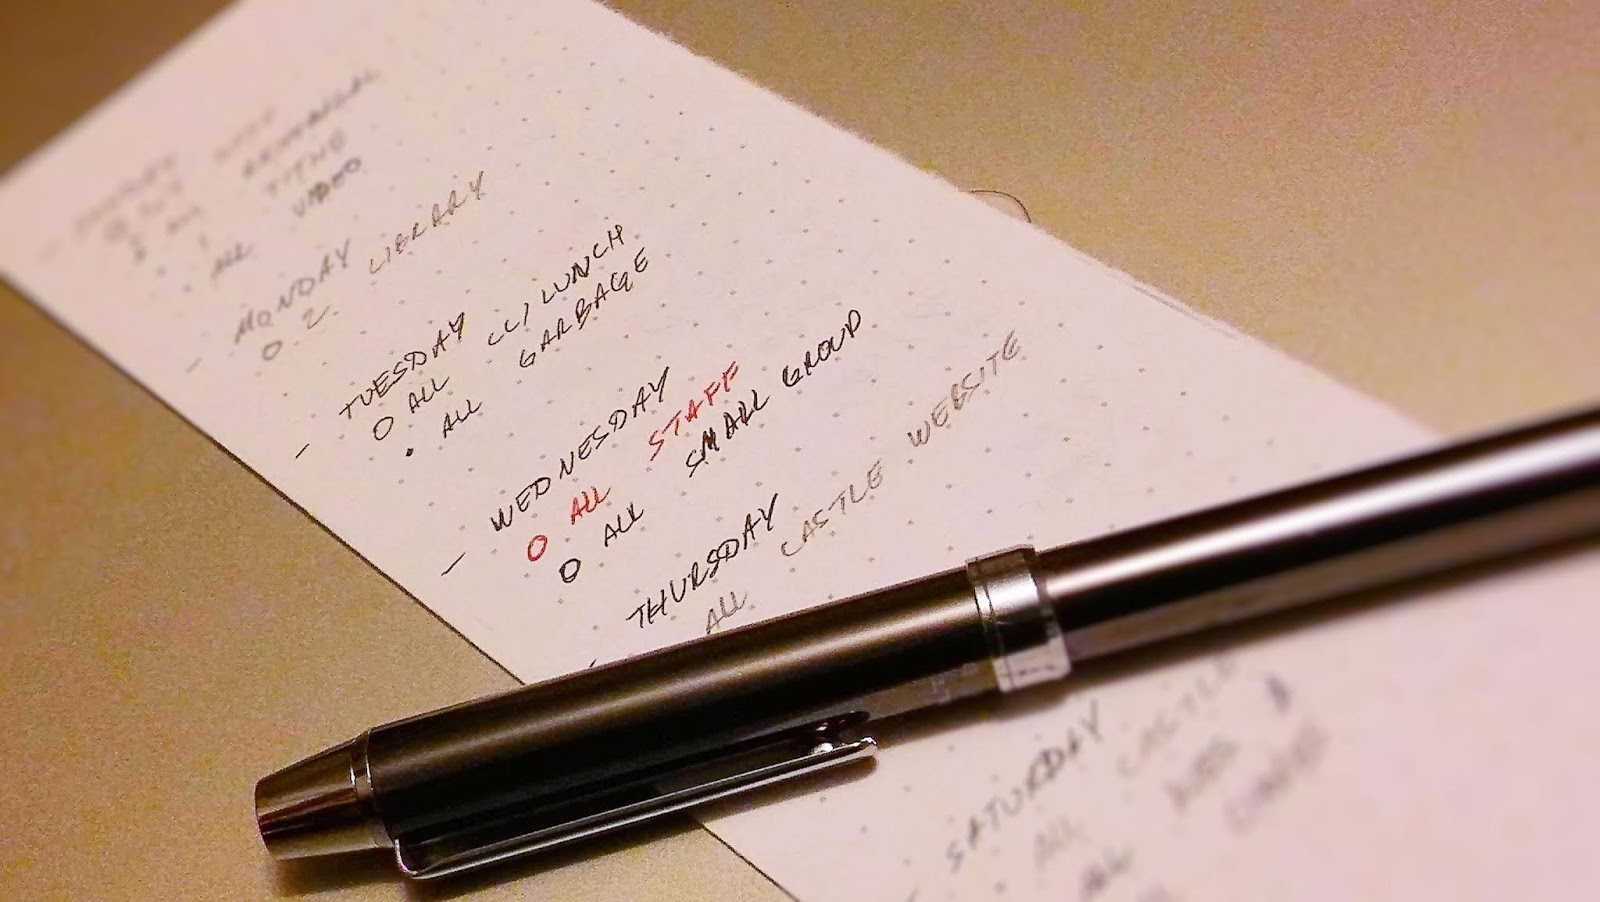 TITHE
ALL VIDEO
- MONDAY
O 2 LIBRARY
- TUESDAY
O ALL CC/LUNCH
• ALL GARBAGE
- WEDNESDAY
O ALL STAFF
O ALL SMALL GROUP
- THURSDAY
ALL CASTLE WEBSITE
- SATURDAY
ALL CASTLE
ALL